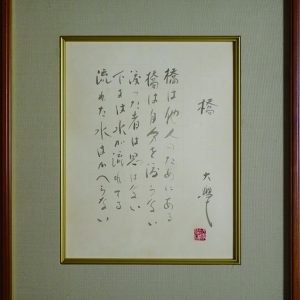 橋
大學
橋は他人のためにある
橋は自分を渡らない
渡った者は思はない
下には水が流れてる
流れた水はかへらない